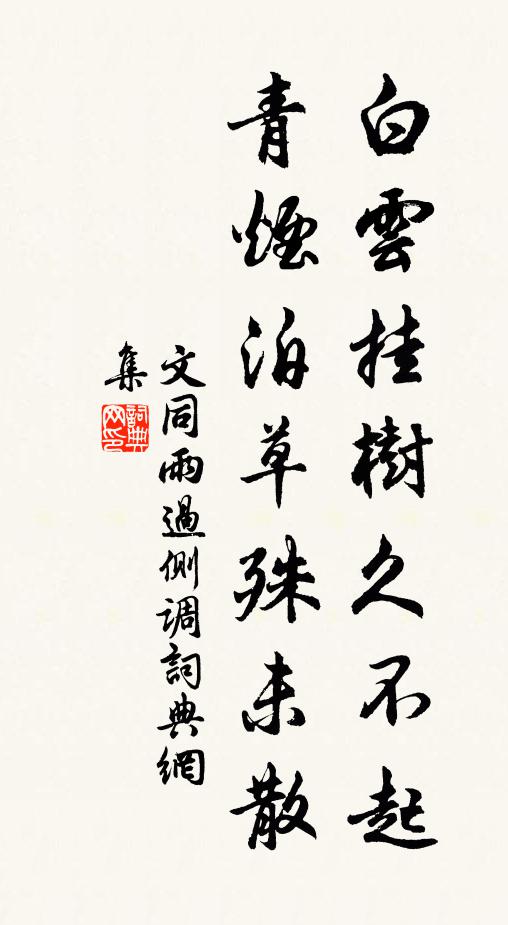 白雲挂樹久不起
青煙泊草殊未散
文同雨過側调詞典網
集
詞典网印